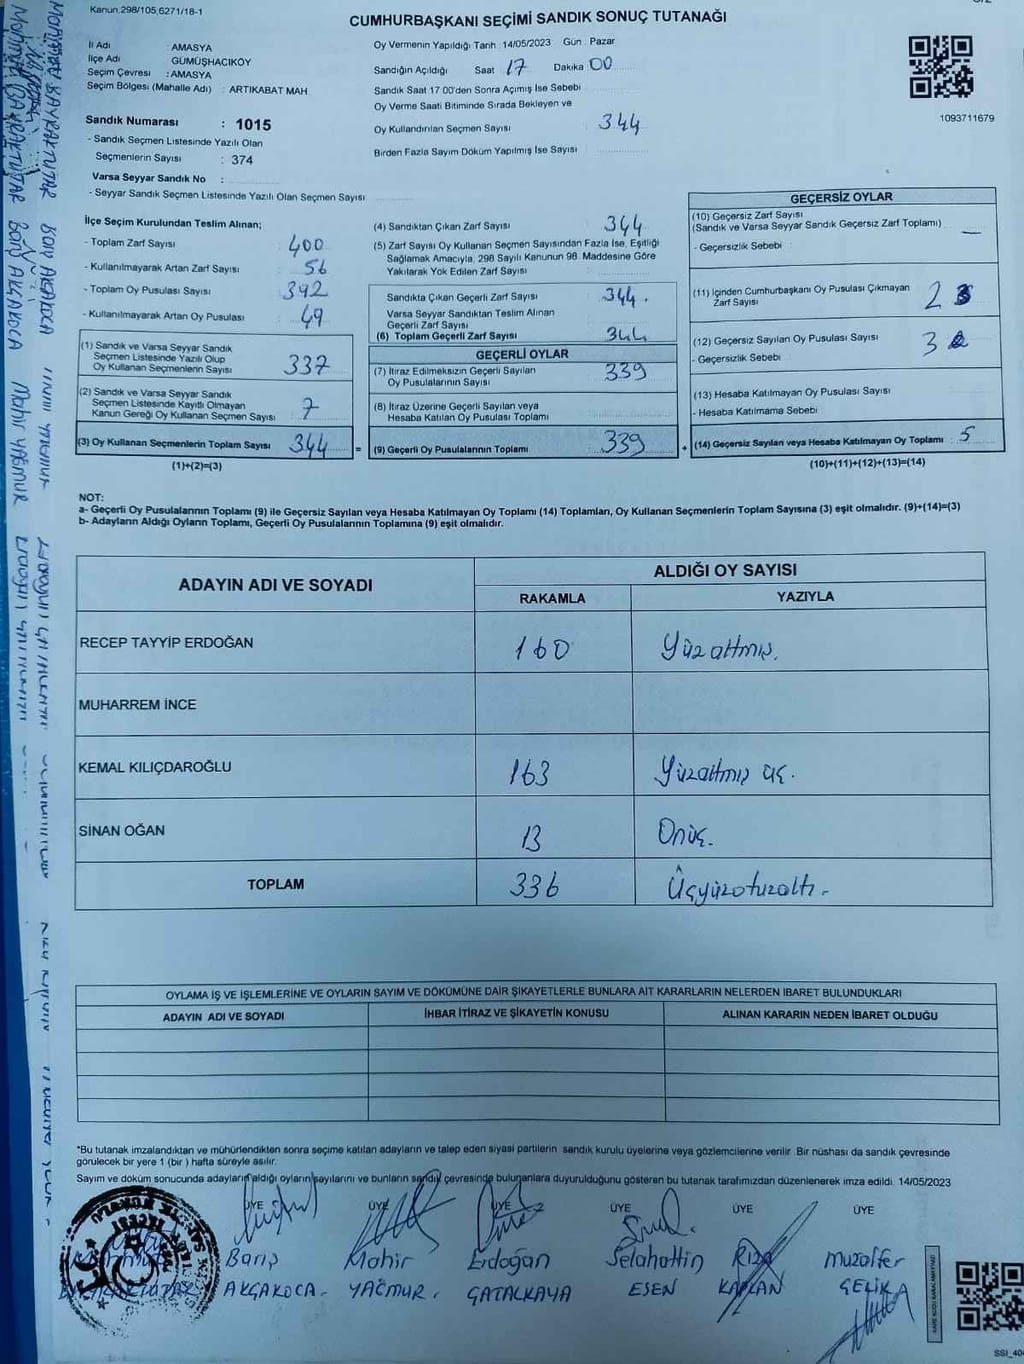 Kanun,298/105,6271/18-1
CUMHURBAŞKANI SEÇİMİ SANDIK SONUÇ TUTANAĞI
İl Adı : AMASYA
İlçe Adı GÜMÜŞHACIKÖY
Seçim Çevresi : AMASYA
Seçim Bölgesi (Mahalle Adı) : ARTIKABAT MAH
Sandık Numarası : 1015
- Sandık Seçmen Listesinde Yazılı Olan
Seçmenlerin Sayısı : 374
Varsa Seyyar Sandık No :
- Seyyar Sandık Seçmen Listesinde Yazılı Olan Seçmen Sayısı
Oy Vermenin Yapıldığı Tarih : 14/05/2023 Gün : Pazar
Sandığın Açıldığı Saat 17 Dakika 00
Sandık Saat 17 00'den Sonra Açımış İse Sebebi
Oy Verme Saati Bitiminde Sırada Bekleyen ve
Oy Kullandırılan Seçmen Sayısı 344
Birden Fazla Sayım Döküm Yapılmış İse Sayısı
1093711679
İlçe Seçim Kurulundan Teslim Alınan;
- Toplam Zarf Sayısı 400
- Kullanılmayarak Artan Zarf Sayısı 56
- Toplam Oy Pusulası Sayısı 392
- Kullanılmayarak Artan Oy Pusulası 49
(1) Sandık ve Varsa Seyyar Sandık
Seçmen Listesinde Yazılı Olup
Oy Kullanan Seçmenlerin Sayısı 337
(2) Sandık ve Varsa Seyyar Sandık
Seçmen Listesinde Kayıtlı Olmayan
Kanun Gereği Oy Kullanan Seçmen Sayısı 7
(3) Oy Kullanan Seçmenlerin Toplam Sayısı 344
(1)+(2)=(3)
=
(4) Sandıktan Çıkan Zarf Sayısı 344
(5) Zarf Sayısı Oy Kullanan Seçmen Sayısından Fazla İse, Eşitliği
Sağlamak Amacıyla, 298 Sayılı Kanunun 98. Maddesine Göre
Yakılarak Yok Edilen Zarf Sayısı
Sandıkta Çıkan Geçerli Zarf Sayısı 344.
Varsa Seyyar Sandıktan Teslim Alınan
Geçerli Zarf Sayısı
(6) Toplam Geçerli Zarf Sayısı 344
GEÇERLİ OYLAR
(7) İtiraz Edilmeksizin Geçerli Sayılan
Oy Pusulalarının Sayısı 339
(8) İtiraz Üzerine Geçerli Sayılan veya
Hesaba Katılan Oy Pusulası Toplamı
(9) Geçerli Oy Pusulalarının Toplamı 339
+
GEÇERSİZ OYLAR
(10) Geçersiz Zarf Sayısı
(Sandık ve Varsa Seyyar Sandık Geçersiz Zarf Toplamı) —
- Geçersizlik Sebebi :
(11) İçinden Cumhurbaşkanı Oy Pusulası Çıkmayan
Zarf Sayısı 2
(12) Geçersiz Sayılan Oy Pusulası Sayısı 3
- Geçersizlik Sebebi :
(13) Hesaba Katılmayan Oy Pusulası Sayısı
- Hesaba Katılmama Sebebi
(14) Geçersiz Sayılan veya Hesaba Katılmayan Oy Toplamı : 5
(10)+(11)+(12)+(13)=(14)
NOT:
a- Geçerli Oy Pusulalarının Toplamı (9) ile Geçersiz Sayılan veya Hesaba Katılmayan Oy Toplamı (14) Toplamları, Oy Kullanan Seçmenlerin Toplam Sayısına (3) eşit olmalıdır. (9)+(14)=(3)
b- Adayların Aldığı Oyların Toplamı, Geçerli Oy Pusulalarının Toplamına (9) eşit olmalıdır.
ADAYIN ADI VE SOYADI ALDIĞI OY SAYISI
RAKAMLA YAZIYLA
RECEP TAYYİP ERDOĞAN 160 Yüzaltmış.
MUHARREM İNCE
KEMAL KILIÇDAROĞLU 163 Yüzaltmış üç.
SİNAN OĞAN 13 Onüç.
TOPLAM 336 Üçyüzotuzaltı.
OYLAMA İŞ VE İŞLEMLERİNE VE OYLARIN SAYIM VE DÖKÜMÜNE DAİR ŞİKAYETLERLE BUNLARA AİT KARARLARIN NELERDEN İBARET BULUNDUKLARI
ADAYIN ADI VE SOYADI İHBAR İTİRAZ VE ŞİKAYETİN KONUSU ALINAN KARARIN NEDEN İBARET OLDUĞU
*Bu tutanak imzalandıktan ve mühürlendikten sonra seçime katılan adayların ve talep eden siyasi partilerin sandık kurulu üyelerine veya gözlemcilerine verilir. Bir nüshası da sandık çevresinde
görülecek bir yere 1 (bir ) hafta süreyle asılır.
Sayım ve döküm sonucunda adayların aldığı oyların sayılarını ve bunların sandık çevresinde bulunanlara duyurulduğunu gösteren bu tutanak tarafımızdan düzenlenerek imza edildi. 14/05/2023
ÜYE ÜYE ÜYE ÜYE ÜYE ÜYE
Barış Mahir Erdoğan Selahattin Rıza muzaffer
AKÇAKOCA. YAĞMUR. ÇATALKAYA ESEN KAPLAN ÇELİK